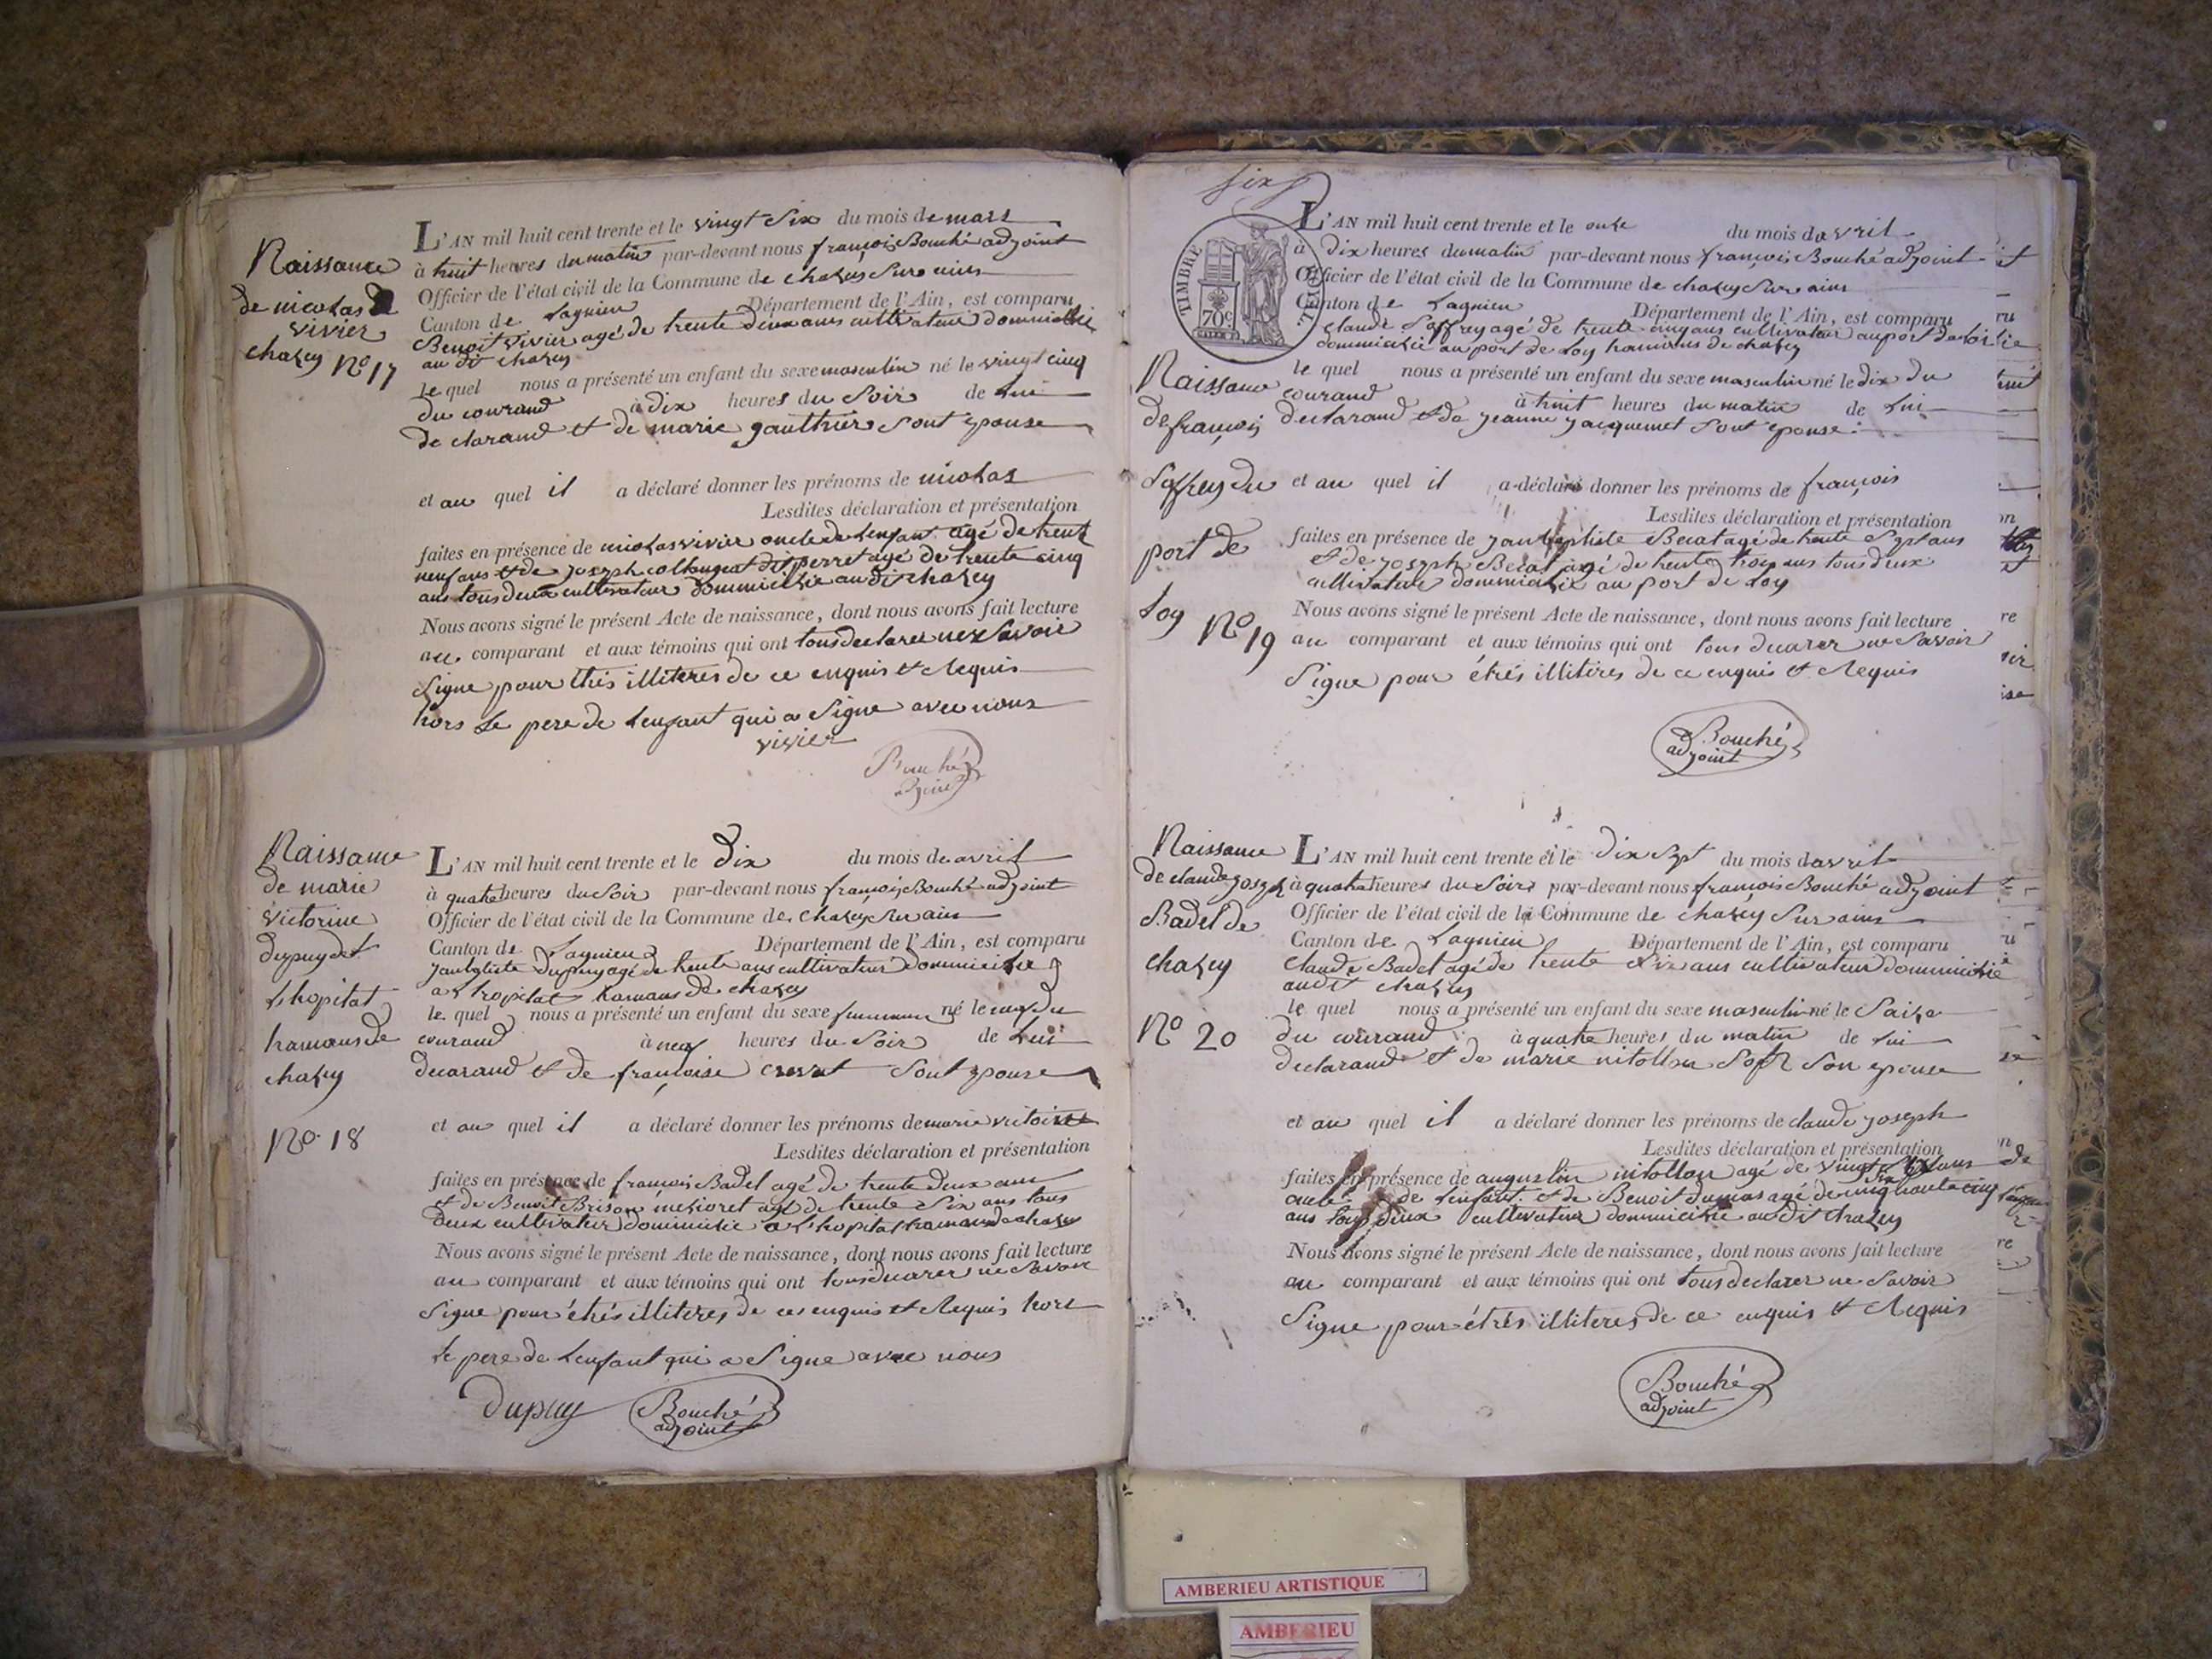 Naissance
de nicolas
vivier
chazey No 17
L'AN mil huit cent trente et le vingt Six du mois de mars
à huit heures du matin par-devant nous françois Bouché adjoint
Officier de l'état civil de la Commune de chazey Sur ain
Canton de Lagnieu Département de l'Ain, est comparu
Benoit vivier agé de trente deux ans cultivateur dommicillié
au dit chazey
le quel nous a présenté un enfant du sexe masculin né le vingt cinq
du courand à dix heures du Soir de Lui
declarand et de marie gauthier Sont epouse
et au quel il a déclaré donner les prénoms de nicolas
Lesdites déclaration et présentation
faites en présence de nicolas vivier oncle de Lenfant agé de trente
neuf ans et de joseph collongeat dit perret agé de trente cinq
ans tous deux cultivateur dommicilié au dit chazey
Nous avons signé le présent Acte de naissance, dont nous avons fait lecture
au comparant et aux témoins qui ont tous declarer ne Savoir
Signe pour illiteres de ce enquis et Requis
hors Le pere de Lenfant qui a Signe avec nous
vivier
Bouché
adjoint
Naissance
de marie
victorine
dupuy de
Lhopital
hamaus de
chazey
No 18
L'AN mil huit cent trente et le dix du mois de avril
à quatre heures du Soir par-devant nous françois Bouché adjoint
Officier de l'état civil de la Commune de chazey Sur ain
Canton de Lagnieu Département de l'Ain, est comparu
dupuy agé de trente ans cultivateur dommicilié
a Lhopital hamaus de chazey
le quel nous a présenté un enfant du sexe né le neuf du
courand à neuf heures du Soir de Lui
decarand et de françoise Sont epouse
et au quel il a déclaré donner les prénoms de marie
Lesdites déclaration et présentation
faites en présence de françois Badel agé de trente deux ans
et de Benoit Brison agé de trente Six ans tous
deux cultivateur dommicilié a Lhopital hamaus de chazey
Nous avons signé le présent Acte de naissance, dont nous avons fait lecture
au comparant et aux témoins qui ont tous decarer ne Savoir
Signe pour étrés illiteres de ces enquis et Requis hors
Le pere de Lenfant qui a Signe avec nous
Dupuy
Bouché
adjoint
six
TIMBRE
70c
Naissance
de françois
Soffrey du
port de
Loy No 19
L'AN mil huit cent trente et le onze du mois davril
à Dix heures du matin par-devant nous françois Bouché adjoint
Officier de l'état civil de la Commune de chazey Sur ain
Canton de Lagnieu Département de l'Ain, est comparu
claude Soffrey agé de trente cinq ans cultivateur au port de Loi
dommicilié au port de Loy hamaus de chazey
le quel nous a présenté un enfant du sexe masculin né le dix du
courand à huit heures du matin de Lui
declarand et de jeanne jacquemet Sont epouse
et au quel il a déclaré donner les prénoms de françois
Lesdites déclaration et présentation
faites en présence de jan baptiste Berat agé de trente Sept ans
et de joseph Berat agé de trente trois ans tous deux
cultivateur dommicilié au port de Loy
Nous avons signé le présent Acte de naissance, dont nous avons fait lecture
au comparant et aux témoins qui ont tous decarer ne Savoir
Signe pour étrés illiteres de ce enquis et Requis
Bouché
adjoint
Naissance
de claude joseph
Badel de
chazey
No 20
L'AN mil huit cent trente et le dix Sept du mois davril
à quatre heures du Soir par-devant nous françois Bouché adjoint
Officier de l'état civil de la Commune de chazey Sur ain
Canton de Lagnieu Département de l'Ain, est comparu
Claude Badel agé de trente Six ans cultivateur dommicilié
au dit chazey
le quel nous a présenté un enfant du sexe masculin né le Saize
du courand à quatre heures du matin de Lui
declarand et de marie nitollon Son epouse
et au quel il a déclaré donner les prénoms de claude joseph
Lesdites déclaration et présentation
faites en présence de augustin nitollon agé de vingt Six ans
oncle de Lenfant et de Benoit dumas agé de cinquante cinq
ans tous deux cultivateur dommicilié au dit chazey
Nous avons signé le présent Acte de naissance, dont nous avons fait lecture
au comparant et aux témoins qui ont tous declarer ne Savoir
Signe pour étrés illiteres de ce enquis et Requis
Bouché
adjoint
AMBERIEU ARTISTIQUE
AMBERIEU